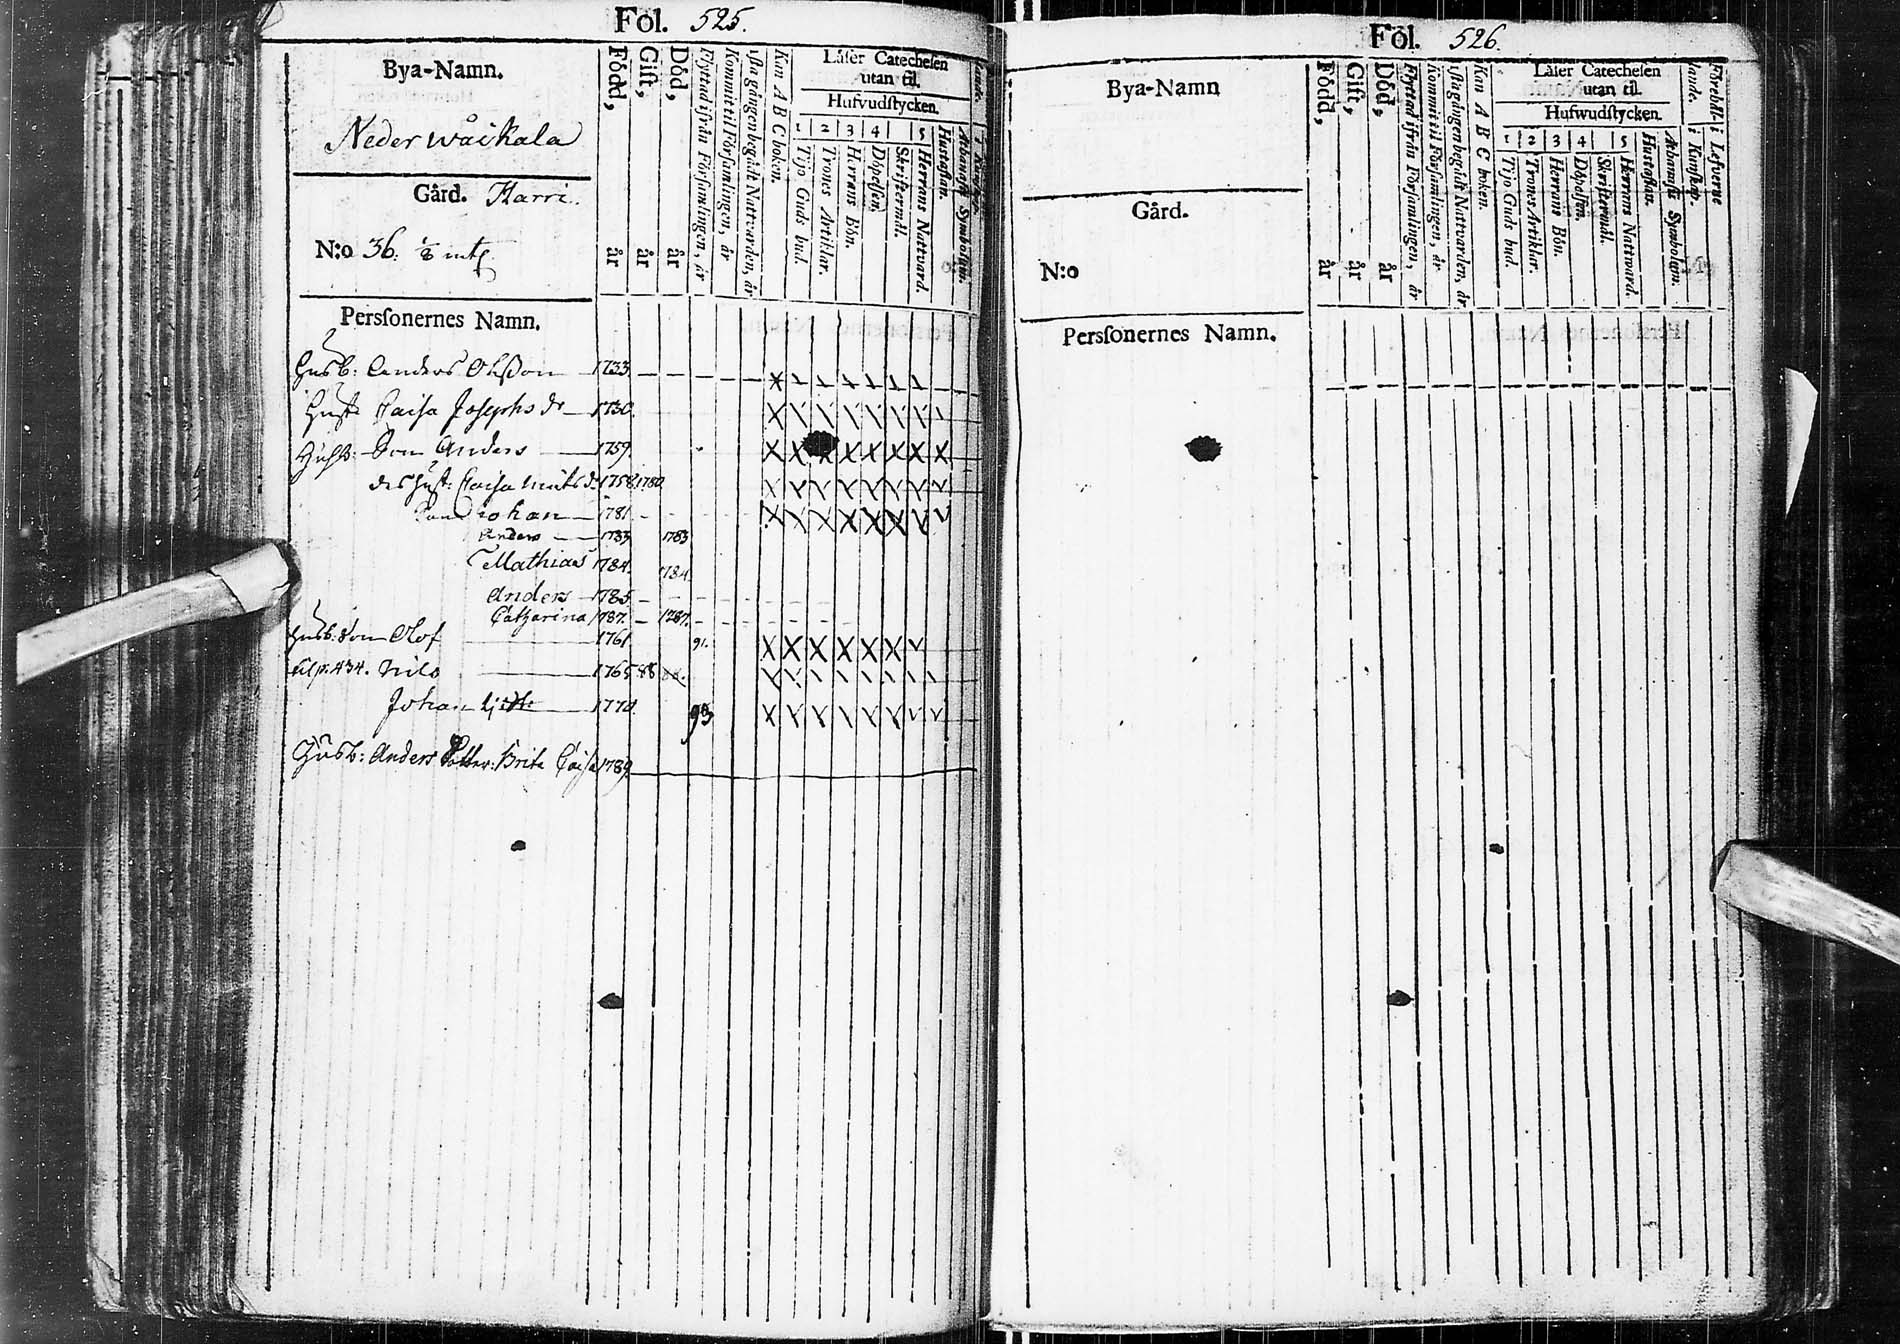 Fol. 525.
Bya-Namn.
Neder Wäikala
Gård. Harri.
N:o 36. 1/8 mtl
Persſonernes Namn.
Född, år
Gift, år
Död, år
Flyttad ifrån Förſamlingen, år
Kommit til Förſamlingen, år
iſta gången begådt Nattvarden, år
Kan A B C boken.
Läſer Catecheſen
utan til.
Hufvudſtycken.
1 2 3 4 5
Tijo Guds bud.
Trones Artiklar.
Herrans Bön.
Döpelſen.
Skriftermål.
Herrans Nattvard.
Huſtaflan.
Athanaſii Symbolum.
Husb: Anders Olſson 1733
Hust: Caisa Josephs dr 1730
Husb: Son Anders 1759
des Hust: Caisa Mats dr 1758 1780
Son Johan 1781
Anders 1783 1783
Mathias 1784 1784
Anders 1785
Catharina 1787 1787
Husb: Son Olof 1761 91.
til p. 434. Nils 1765 88
Johan 1770 93
Husb: Anders Dotter: Brita Caisa 1789
Fol. 526.
Bya-Namn
Gård.
N:o
Persſonernes Namn.
Född, år
Gift, år
Död, år
Flyttad ifrån Förſamlingen, år
Kommit til Förſamlingen, år
iſta gången begådt Nattvarden, år
Kan A B C boken.
Läſer Catecheſen
utan til.
Hufwudſtycken.
1 2 3 4 5
Tijo Guds bud.
Trones Artiklar.
Herrans Bön.
Döpelſen.
Skriftermål.
Herrans Nattward.
Huſtaflan.
Athanaſii Symbolum.
Förehål-
lande. i Kunſkap.
i Lefverne